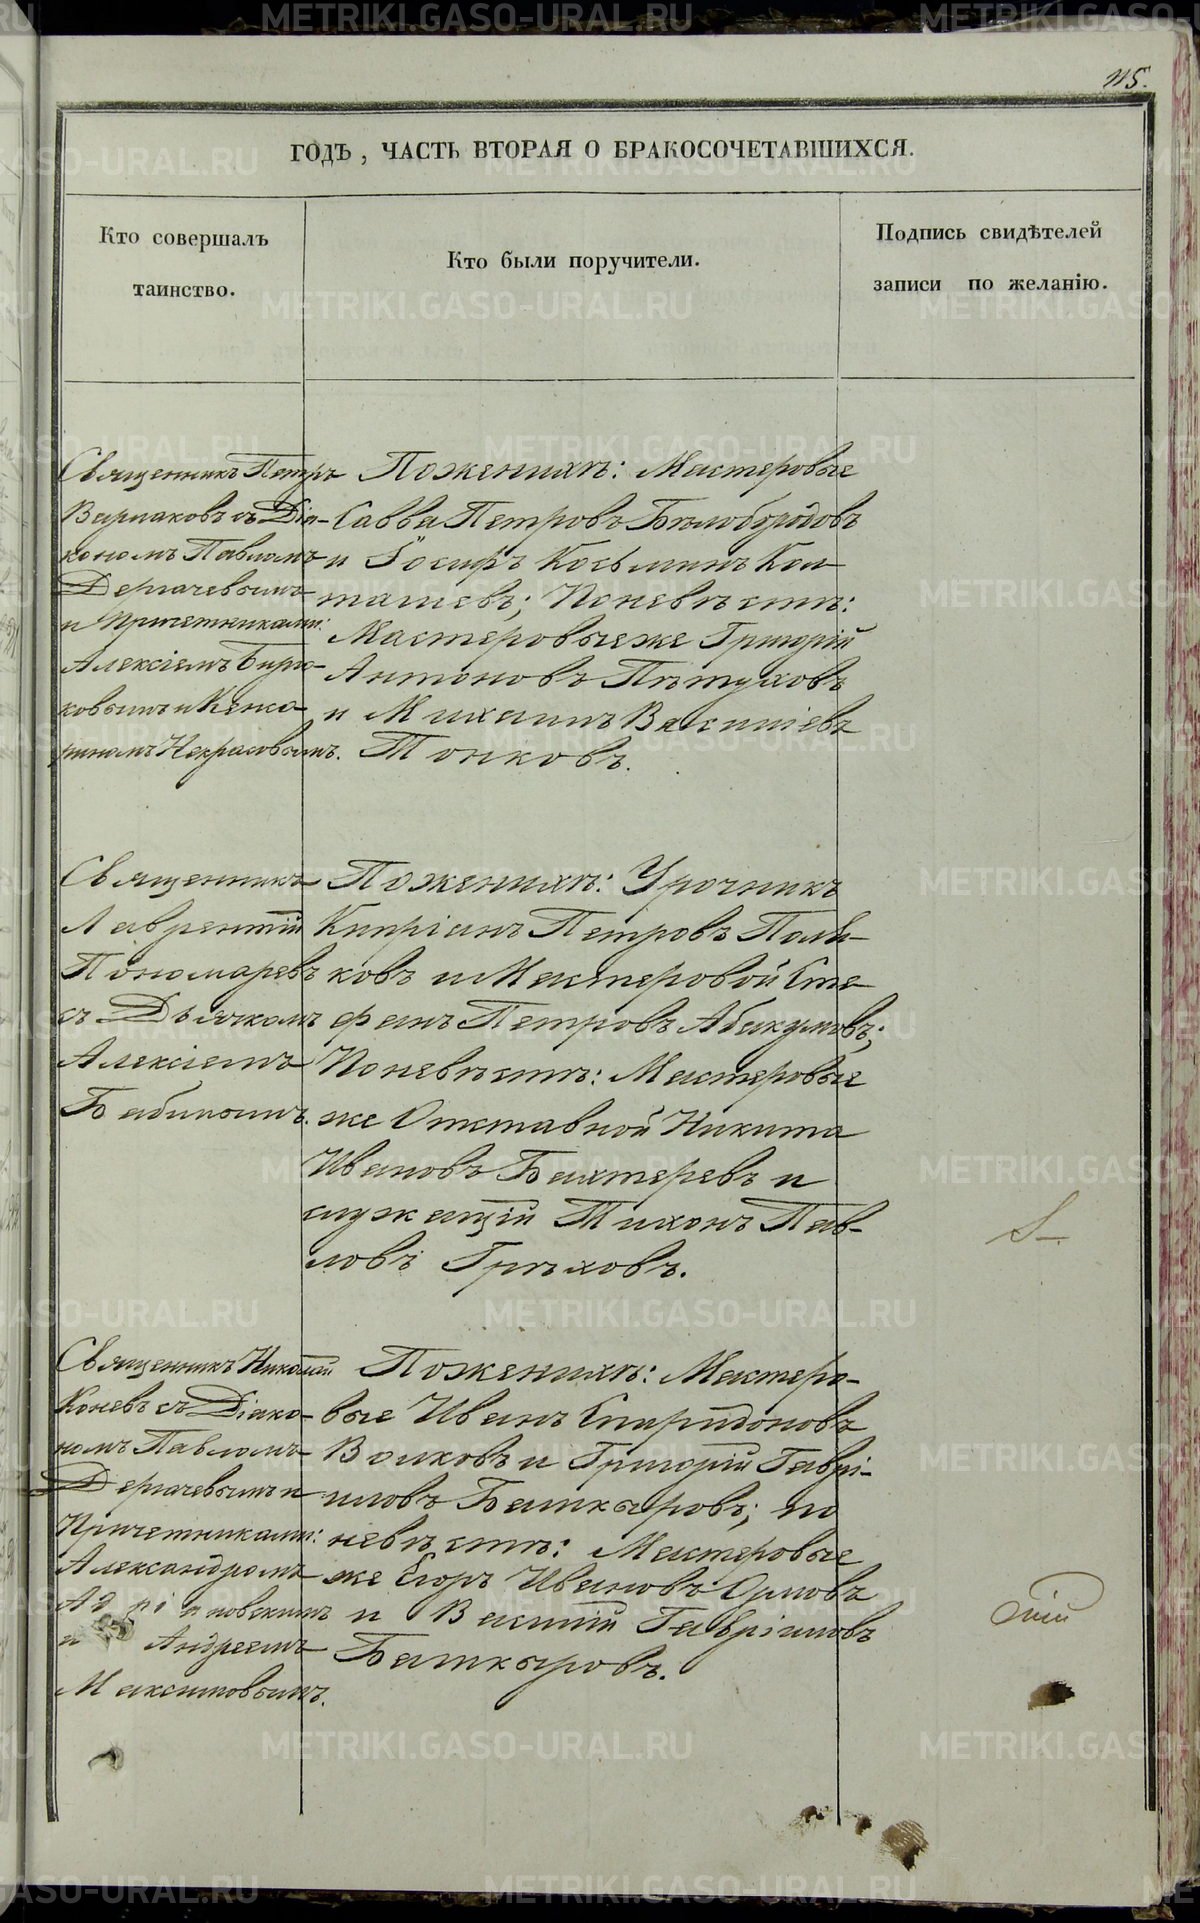 115.
ГОДЪ, ЧАСТЬ ВТОРАЯ О БРАКОСОЧЕТАВШИХСЯ.
Кто совершалъ
таинство.
Кто были поручители.
Подпись свидѣтелей
записи по желанію.
Священникъ Петръ
Варлаковъ съ Діа-
кономъ Павломъ
Дергачевымъ
и Причетниками:
Алексіемъ Бирю-
ковымъ и Кенса-
риномъ Некрасовымъ.
Поженихѣ: Мастеровые
Савва Петровъ Бѣлобородовъ
и Іосифъ Косьминъ Кол-
ташевъ; Поневѣстѣ:
Мастеровые же Григорій
Антоновъ Пѣтуховъ
и Михаилъ Васильевъ
Тонковъ.
Священникъ
Лаврентій
Пономаревъ
съ Дьячкомъ
Алексіемъ
Бабинымъ.
Поженихѣ: Урочникъ
Кипріанъ Петровъ Поля-
ковъ и Мастеровой Сте
фанъ Петровъ Абакумовъ;
Поневѣстѣ: Мастеровые
же Отставной Никита
Ивановъ Бахтеревъ и
служащій Тихонъ Пав-
ловъ Грѣховъ.
Священникъ Николай
Коневъ съ Діако-
номъ Павломъ
Дергачевымъ и
Причетниками:
Александромъ
Адріановскимъ
и Андреемъ
Максимовымъ.
Поженихѣ: Мастеро-
вые Иванъ Спиридоновъ
Волковъ и Григорій Гаврі-
иловъ Башкыровъ; по
невѣстѣ: Мастеровые
же Егоръ Ивановъ Орловъ
и Василій Гавріиловъ
Башкыровъ.
METRIKI.GASO-URAL.RU